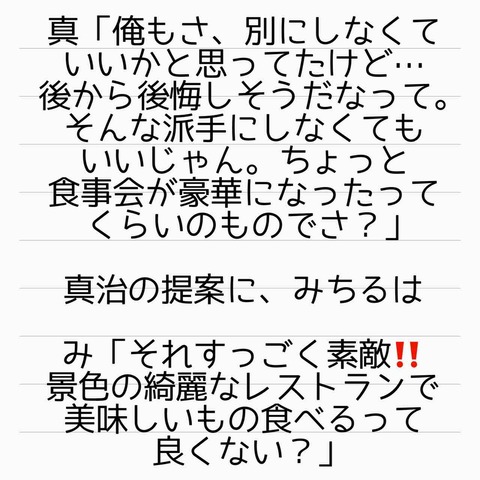 真「俺もさ、別にしなくて
いいかと思ってたけど…
後から後悔しそうだなって。
そんな派手にしなくても
いいじゃん。ちょっと
食事会が豪華になったって
くらいのものでさ？」
真治の提案に、みちるは
み「それすっごく素敵‼️
景色の綺麗なレストランで
美味しいもの食べるって
良くない？」